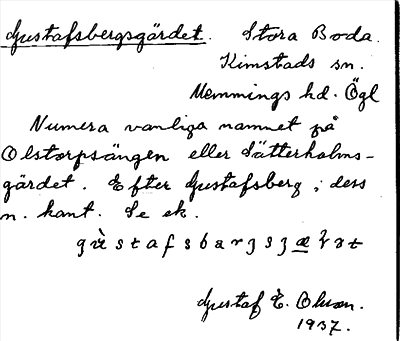 Gustafsbergsgärdet. Stora Boda.
Kimstads sn.
Memmings hd. Ögl
Numera vanliga namnet på
Olstorpsängen eller Sätterholms-
gärdet. Efter Gustafsberg, i dess
n. kant. Se ek.
Gustaf E. Olson.
1937.